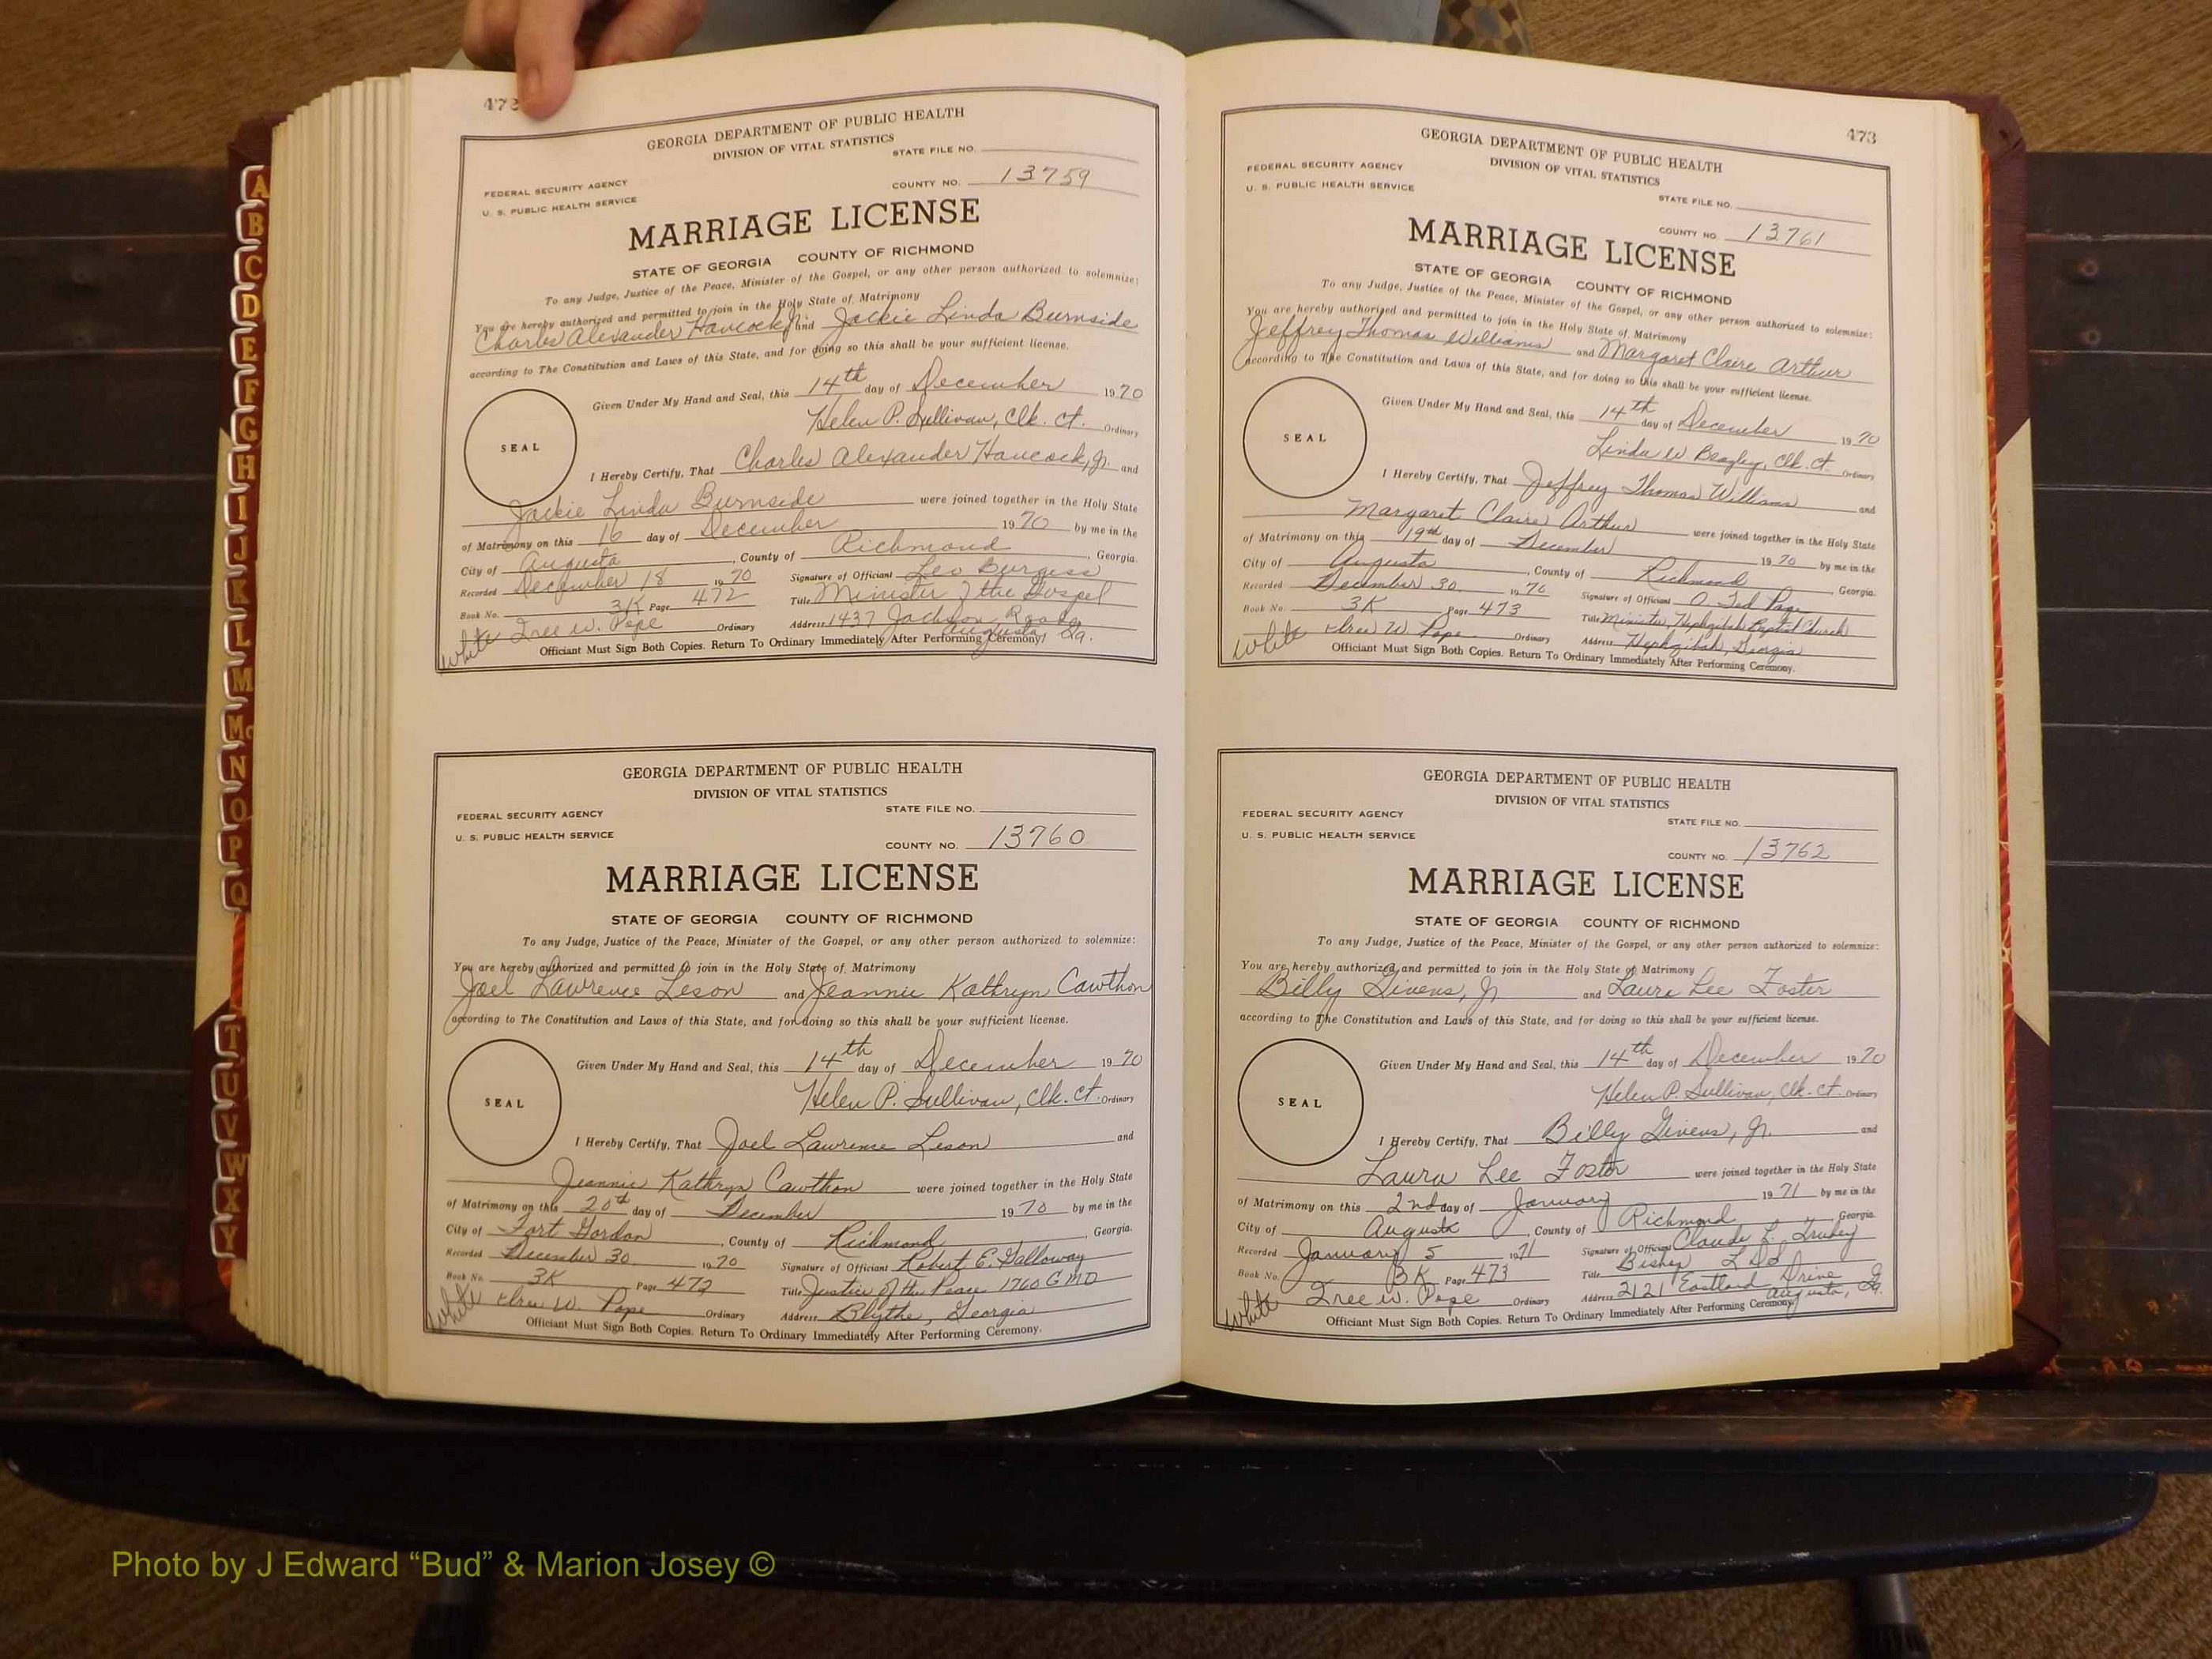 472
GEORGIA DEPARTMENT OF PUBLIC HEALTH
DIVISION OF VITAL STATISTICS
STATE FILE NO.
FEDERAL SECURITY AGENCY
COUNTY NO. 13759
U. S. PUBLIC HEALTH SERVICE
MARRIAGE LICENSE
STATE OF GEORGIA COUNTY OF RICHMOND
To any Judge, Justice of the Peace, Minister of the Gospel, or any other person authorized to solemnize:
You are hereby authorized and permitted to join in the Holy State of Matrimony
Charles Alexander Hancock, Jr. and Jackie Linda Burnside
according to The Constitution and Laws of this State, and for doing so this shall be your sufficient license.
Given Under My Hand and Seal, this 14th day of December 1970
Helen P. Sullivan, Clk. Ct. Ordinary
SEAL
I Hereby Certify, That Charles Alexander Hancock, Jr. and
Jackie Linda Burnside were joined together in the Holy State
of Matrimony on this 16 day of December 1970 by me in the
City of Augusta, County of Richmond, Georgia.
Recorded December 18 1970 Signature of Officiant Leo Burgess
Book No. 3K Page 472 Title Minister of the Gospel
White Ordinary Address 1437 Jackson Road
W. Pope Augusta, Ga.
Officiant Must Sign Both Copies. Return To Ordinary Immediately After Performing Ceremony.
GEORGIA DEPARTMENT OF PUBLIC HEALTH
DIVISION OF VITAL STATISTICS
STATE FILE NO.
FEDERAL SECURITY AGENCY
U. S. PUBLIC HEALTH SERVICE
COUNTY NO. 13760
MARRIAGE LICENSE
STATE OF GEORGIA COUNTY OF RICHMOND
To any Judge, Justice of the Peace, Minister of the Gospel, or any other person authorized to solemnize:
You are hereby authorized and permitted to join in the Holy State of Matrimony
Joel Lawrence Leson and Jeannie Kathryn Cawthon
according to The Constitution and Laws of this State, and for doing so this shall be your sufficient license.
Given Under My Hand and Seal, this 14th day of December 1970
Helen P. Sullivan, Clk. Ct. Ordinary
SEAL
I Hereby Certify, That Joel Lawrence Leson and
Jeannie Kathryn Cawthon were joined together in the Holy State
of Matrimony on this 20th day of December 1970 by me in the
City of Fort Gordon, County of Richmond, Georgia.
Recorded December 30 1970 Signature of Officiant Robert E. Galloway
Book No. 3K Page 472 Title Justice of the Peace 1760 GMD
White W. Pope Ordinary Address Blythe, Georgia
Officiant Must Sign Both Copies. Return To Ordinary Immediately After Performing Ceremony.
473
GEORGIA DEPARTMENT OF PUBLIC HEALTH
DIVISION OF VITAL STATISTICS
FEDERAL SECURITY AGENCY
U. S. PUBLIC HEALTH SERVICE
STATE FILE NO.
COUNTY NO. 13761
MARRIAGE LICENSE
STATE OF GEORGIA COUNTY OF RICHMOND
To any Judge, Justice of the Peace, Minister of the Gospel, or any other person authorized to solemnize:
You are hereby authorized and permitted to join in the Holy State of Matrimony
Jeffrey Thomas Williams and Margaret Claire Arthur
according to The Constitution and Laws of this State, and for doing so this shall be your sufficient license.
Given Under My Hand and Seal, this 14th day of December 1970
Linda W. Clk. Ct. Ordinary
SEAL
I Hereby Certify, That Jeffrey Thomas Williams and
Margaret Claire Arthur were joined together in the Holy State
of Matrimony on this 19th day of December 1970 by me in the
City of Augusta, County of Richmond Georgia.
Recorded December 30 1970 Signature of Officiant O. Ted Page
Book No. 3K Page 473 Title Minister, Hephzibah Baptist Church
White W. Pope Ordinary Address Hephzibah, Georgia
Officiant Must Sign Both Copies. Return To Ordinary Immediately After Performing Ceremony.
GEORGIA DEPARTMENT OF PUBLIC HEALTH
DIVISION OF VITAL STATISTICS
FEDERAL SECURITY AGENCY
STATE FILE NO.
U. S. PUBLIC HEALTH SERVICE
COUNTY NO. 13762
MARRIAGE LICENSE
STATE OF GEORGIA COUNTY OF RICHMOND
To any Judge, Justice of the Peace, Minister of the Gospel, or any other person authorized to solemnize:
You are hereby authorized and permitted to join in the Holy State of Matrimony
Billy Givens, Jr. and Laura Lee Foster
according to The Constitution and Laws of this State, and for doing so this shall be your sufficient license.
Given Under My Hand and Seal, this 14th day of December 1970
Helen P. Sullivan, Clk. Ct. Ordinary
SEAL
I Hereby Certify, That Billy Givens, Jr. and
Laura Lee Foster were joined together in the Holy State
of Matrimony on this 2nd day of January 1971 by me in the
City of Augusta, County of Richmond Georgia.
Recorded January 5 1971 Signature of Officiant Claude L.
Book No. 3K Page 473 Title Bishop LDS
White W. Pope Ordinary Address 2121 Eastland Drive
Augusta, Ga.
Officiant Must Sign Both Copies. Return To Ordinary Immediately After Performing Ceremony.
A
B
C
D
E
F
G
H
I
J
K
L
M
Mc
N
O
P
Q
T
U
V
W
X
Y
Photo by J Edward “Bud” & Marion Josey ©